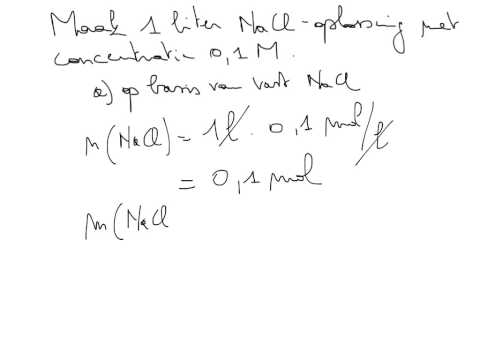 Maak 1 liter NaCl-oplossing met
concentratie 0,1 M.
a) op basis van vast NaCl
n(NaCl) = 1 l . 0,1 mol/l
= 0,1 mol
m(NaCl